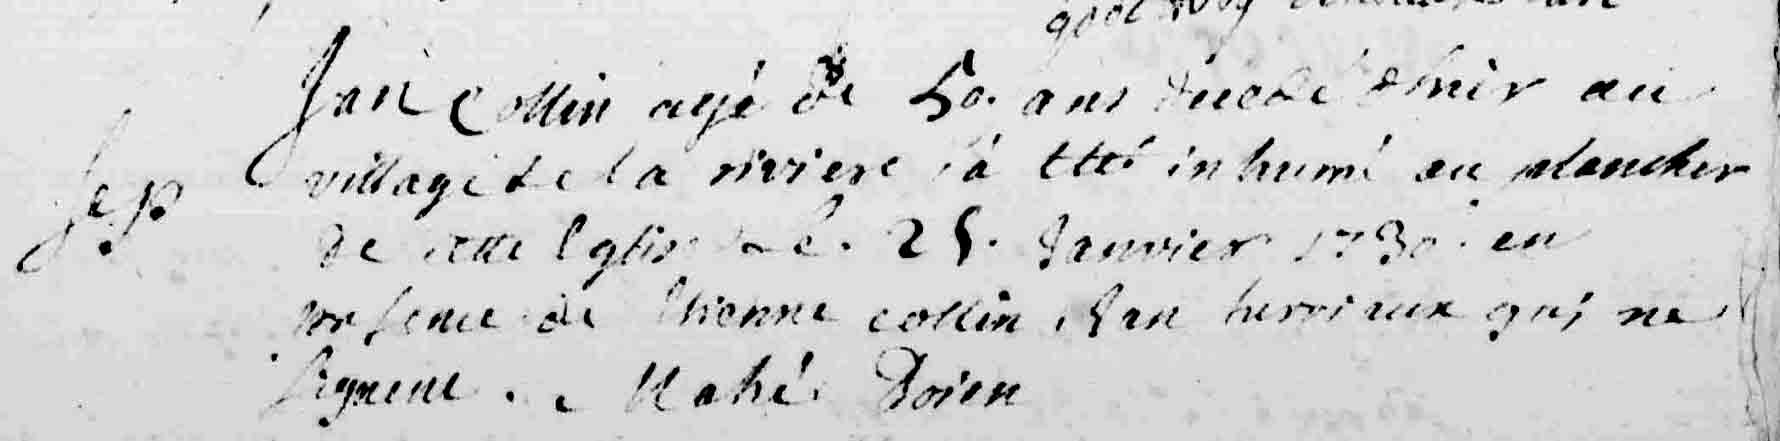 Jan Collin agé de 50 ans decedé d'hier au
Sep village de la riviere a etté inhumé au plancher
de cette Eglise le 25 Janvier 1730 en
presence de Etienne collin Jan hervieux qui ne
signent. Mahé Doien